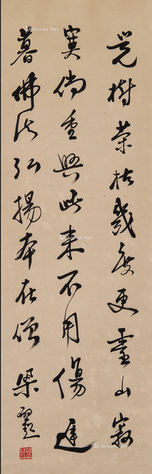 覺樹榮枯幾度更靈山寂
寞倘重興此來不用傷遲
暮佛法弘揚本在僧 梁